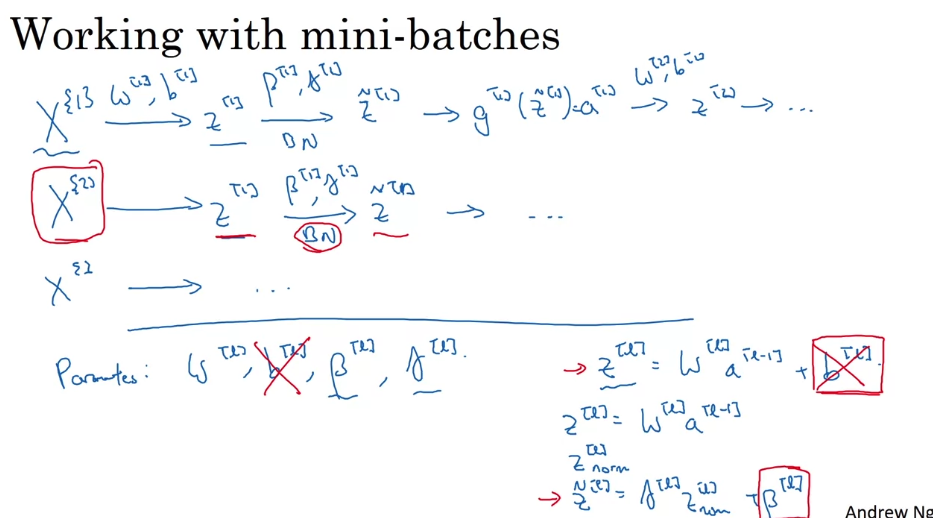 Working with mini-batches
X^{1} W^[1], b^[1] → z^[1] β^[1], γ^[1] → BN z̃^[1] → g^[1](z̃^[1]) = a^[1] W^[2], b^[2] → z^[2] → ...
X^{2} → z^[1] β^[1], γ^[1] → BN z̃^[1] → ...
X^{3} → ...
Parameters: W^[l], b^[l], β^[l], γ^[l].
→ z^[l] = W^[l] a^[l-1] + b^[l].
z^[l] = W^[l] a^[l-1]
z^[l]_norm
→ z̃^[l] = γ^[l] z^[l]_norm + β^[l]
Andrew Ng